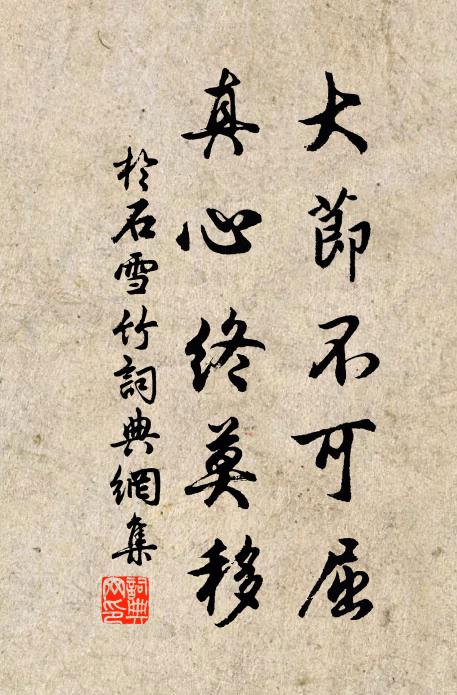 大節不可屈
真心終莫移
於石雪竹詞典網集
詞典網印